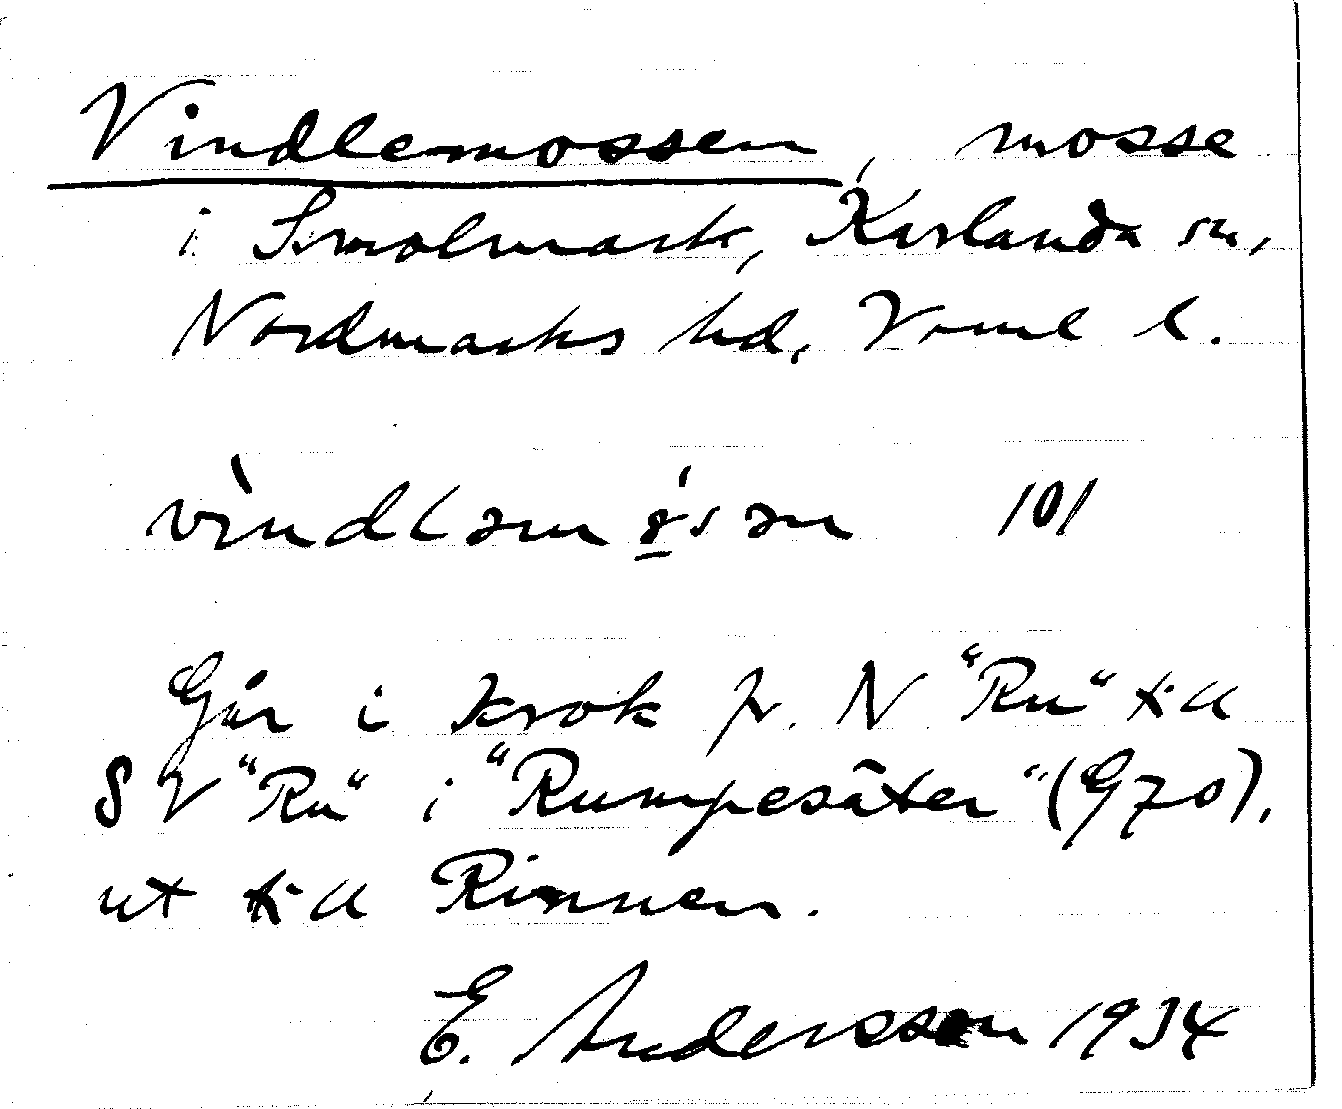 Vindlemossen, mosse
i Smolmark, Karlanda sn,
Nordmarks hd, Verml l.
101
Går i krok fr. N "Ru" till
SV "Ru" i "Rumpesäter" (G70),
ut till Rinnen.
E. Andersson 1934